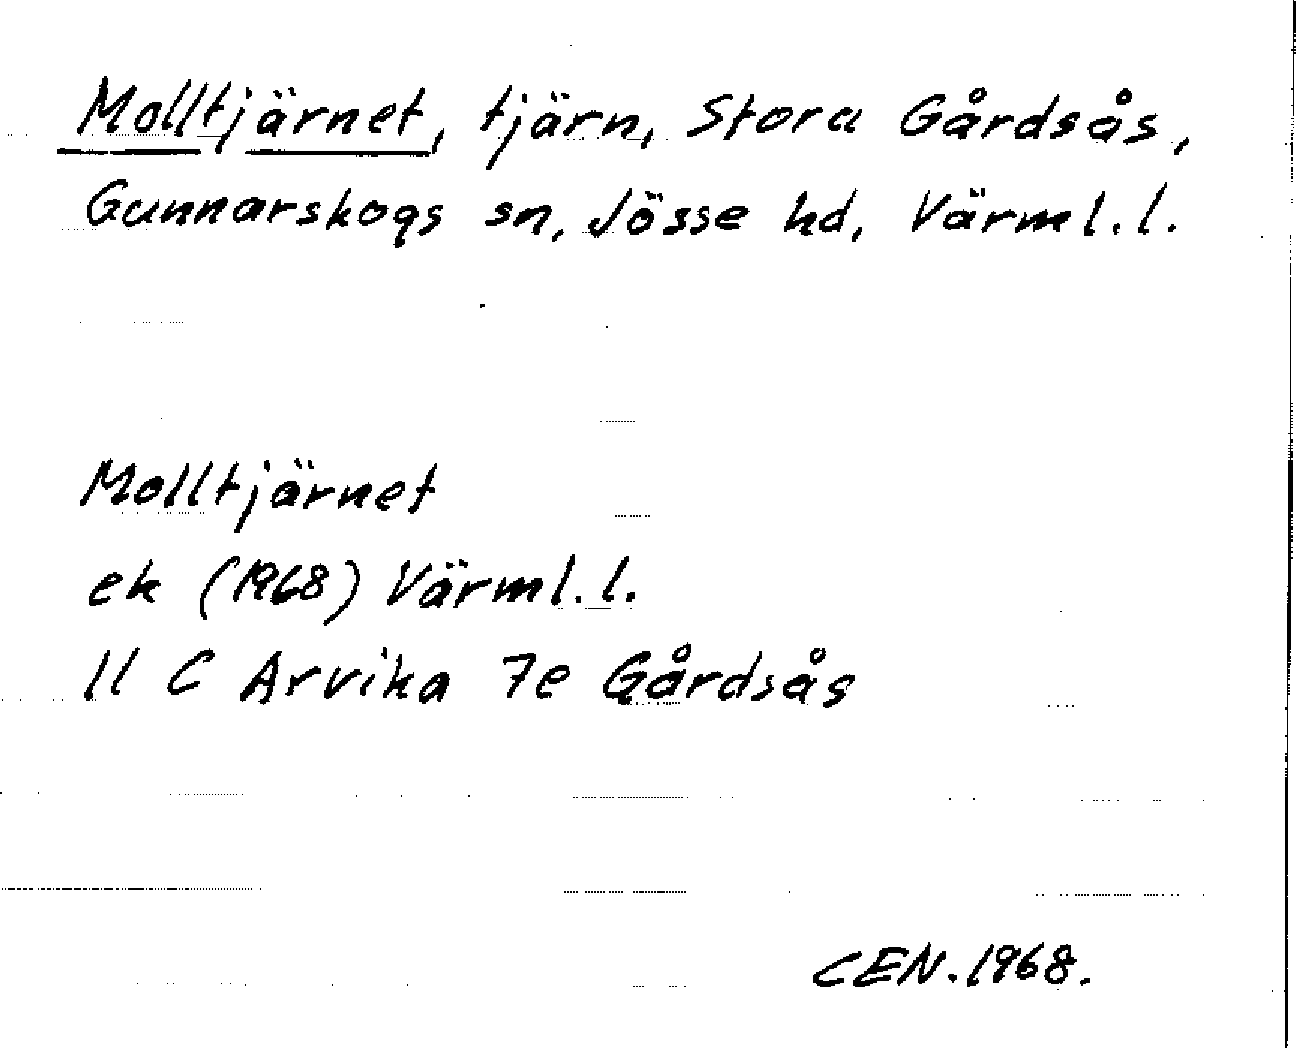 Molltjärnet, tjärn, Stora Gårdsås,
Gunnarskogs sn, Jösse hd, Värml. l.
Molltjärnet
ek (1968) Värml. l.
11 C Arvika 7e Gårdsås
CEN. 1968.